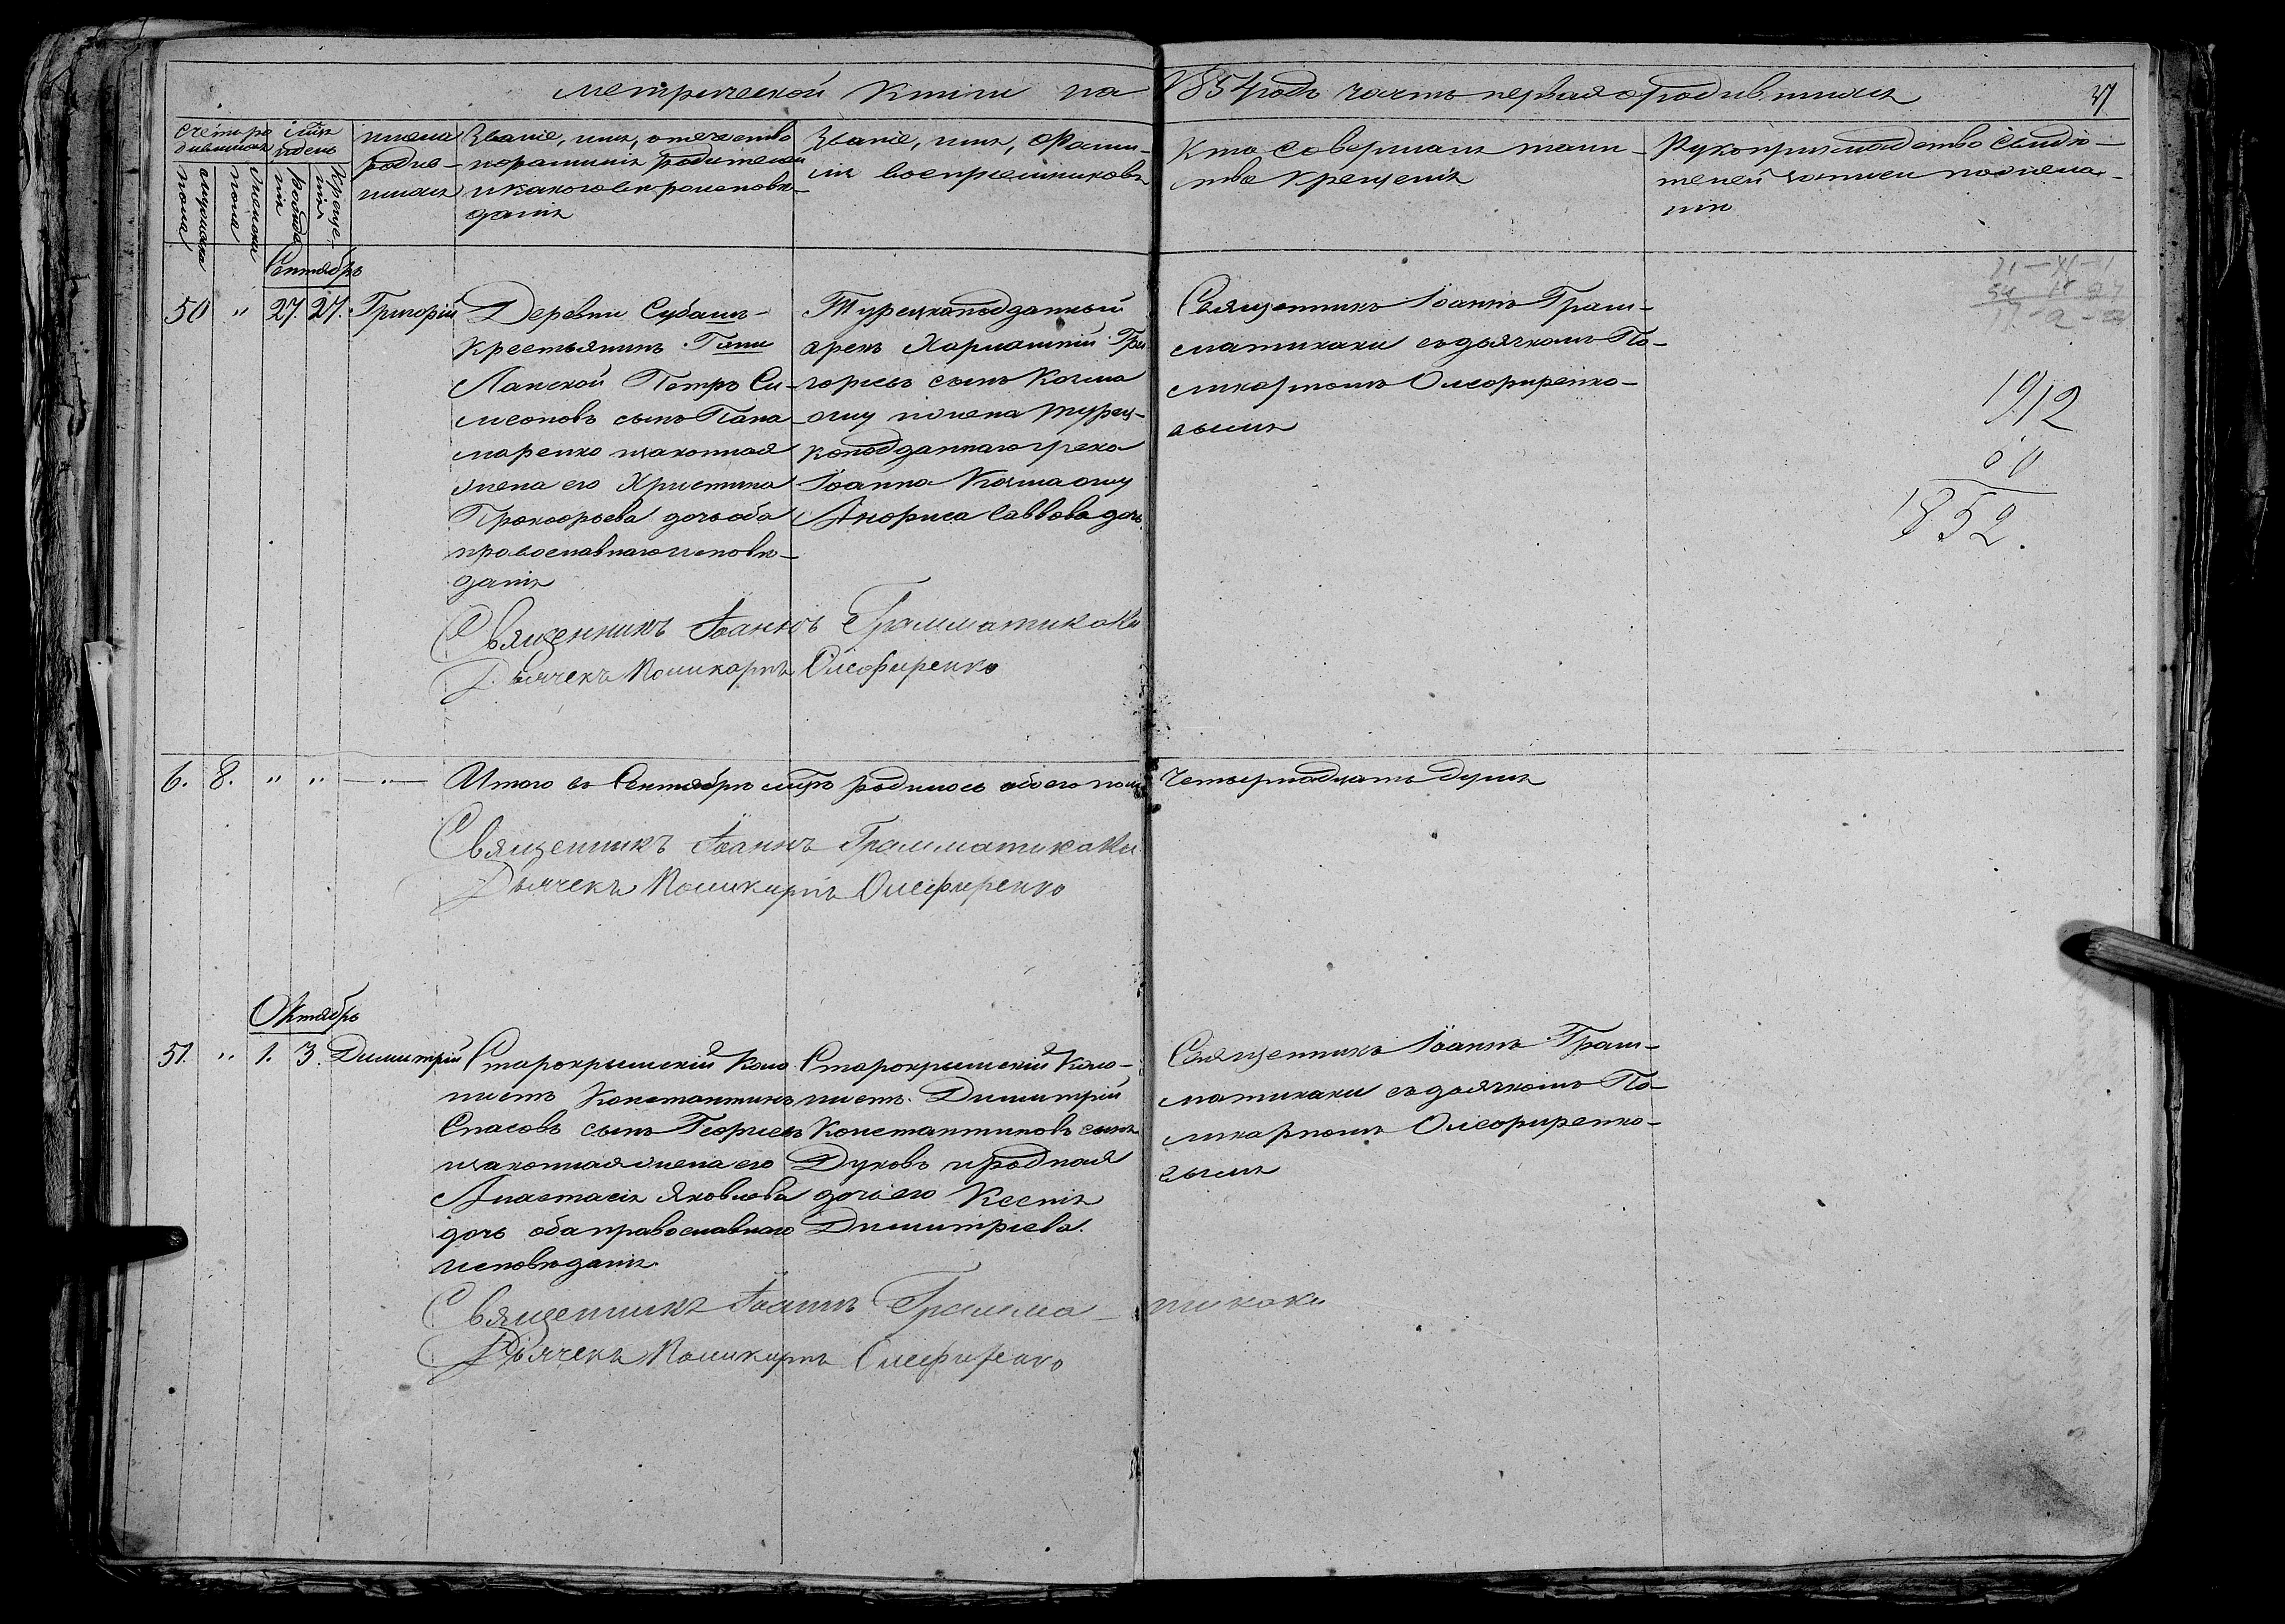 метрической книги на 1854 годъ часть первая о родившихся
37
Счетъ ро
дившихся
мужеска
пола
женска
пола
мѣсяцъ
и день
рожде
нія
креще-
нія
имена
родив-
шихся
Званіе, имя, отечество
и фамилія родителей
и какого вѣроисповѣ-
данія
Званіе, имя, фами-
лія воспріемниковъ
Кто совершалъ таин-
ство крещенія
Рукоприкладство свидѣ-
телей записи по жела-
нію
Сентябрь
50 " 27. 27. Григорій
Деревни Субашъ
Крестьянинъ Г-жи
Ланской Петръ Си-
меоновъ сынъ Пана
маренко и законная
жена его Христина
Прокофьева дочь оба
православнаго исповѣ-
данія
Турецкоподданный
грекъ Харлампій Гри
горьевъ сынъ
оглу и жена турец-
коподданнаго грека
Іоанна
Анфиса Саввова дочь
Священникъ Іоаннъ Грам-
матикаки съ дьячкомъ По-
ликарпомъ Олефиренко-
вымъ
1912
60
1852.
Священникъ Іоаннъ Грамматикаки
Дьячекъ Поликарпъ Олефиренко
6. 8. " " — " — Итого въ Сентябрѣ м-цѣ родилось обоего пола четырнадцать душъ
Священникъ Іоаннъ Грамматикаки
Дьячекъ Поликарпъ Олефиренко
Октябрь
51. " 1. 3. Димитрій
Старокрымскій коло
нистъ Константинъ
Спасовъ сынъ Георгіевъ
и законная жена его
Анастасія Яковлева
дочь оба православнаго
исповѣданія
Старокрымскій коло-
нистъ Димитрій
Константиновъ сынъ
Дуковъ и родная
дочь его Ксенія
Димитріева.
Священникъ Іоаннъ Грам-
матикаки съ дьячкомъ По-
ликарпомъ Олефиренко-
вымъ
Священникъ Іоаннъ Грамма-тикаки
Дьячекъ Поликарпъ Олефиренко